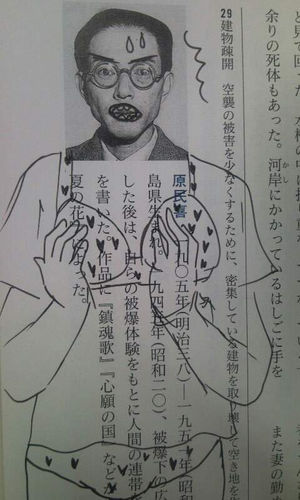 余りの死体もあった。河岸にかかっているはしごに手を
かし
また妻の勤
29 建物疎開 空襲の被害を少なくするために、密集している建物を取り壊して空き地を
原民喜 一九〇五年(明治三八)―一九五一年(昭和
島県生まれ。一九四五年(昭和二〇)、被爆下の広
した後は、自らの被爆体験をもとに人間の連帯
を書いた。作品に『鎮魂歌』『心願の国』など
夏の花』によった。